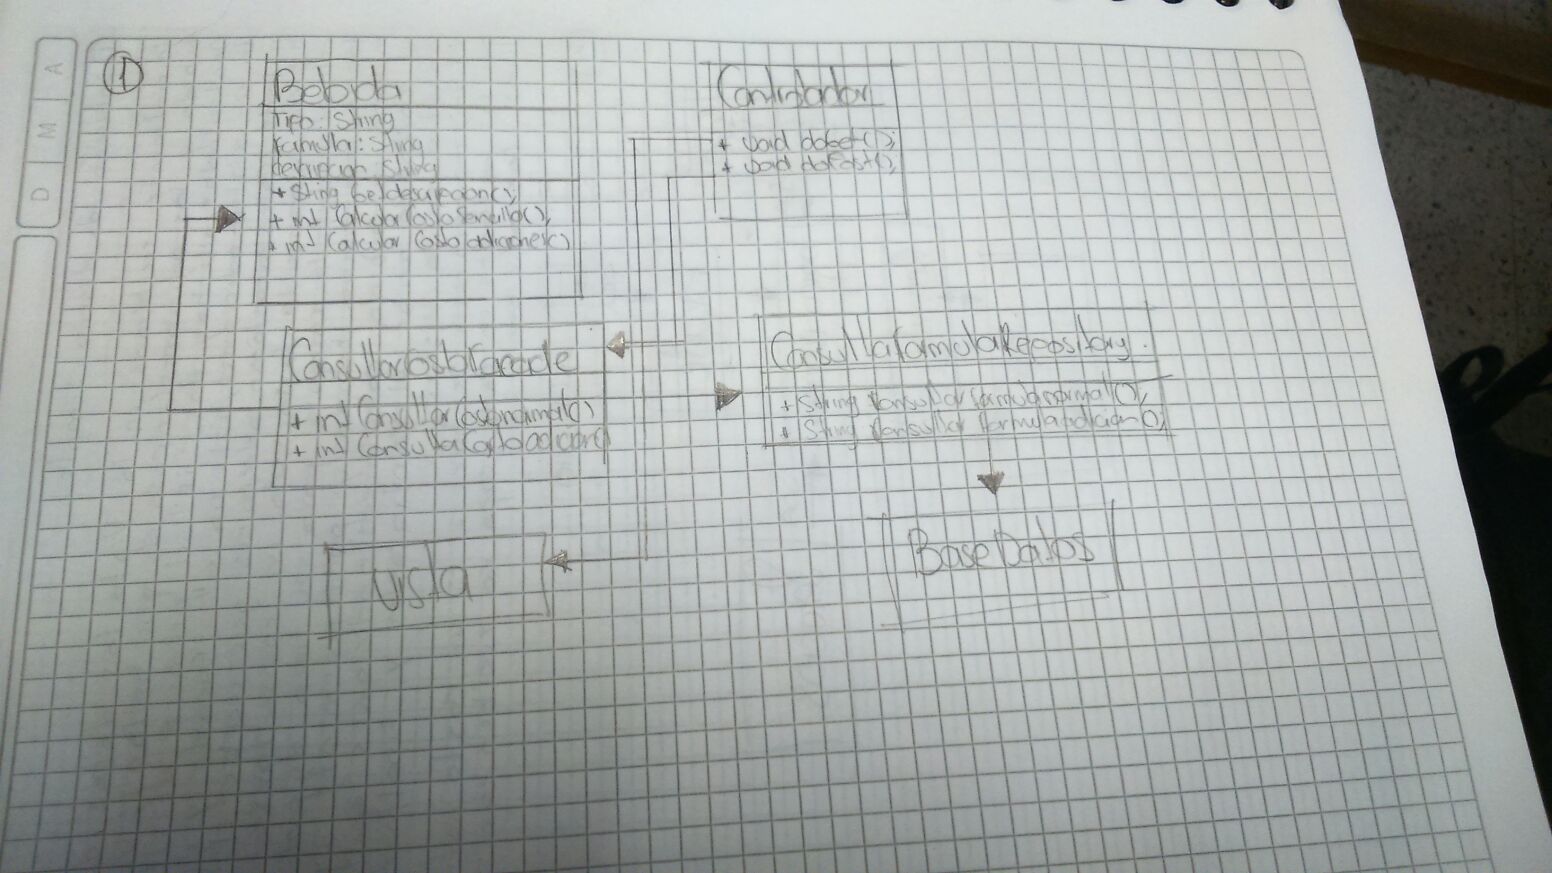 1
Bebida
Tipo: String
Formula: String
descripcion: String
+ String getdescripcion();
+ int CalcularCostoSencillo();
+ int Calcular Costo adiciones()
Controlador
+ void doGet();
+ void doPost();
ConsultarCostoFacade
+ int ConsultarCostonormal()
+ int ConsultaCostoadicion()
ConsultaFormulaRepository.
+ String Consultar formula normal();
+ String Consultar formula adicion();
Vista
Base Datos
A
M
D